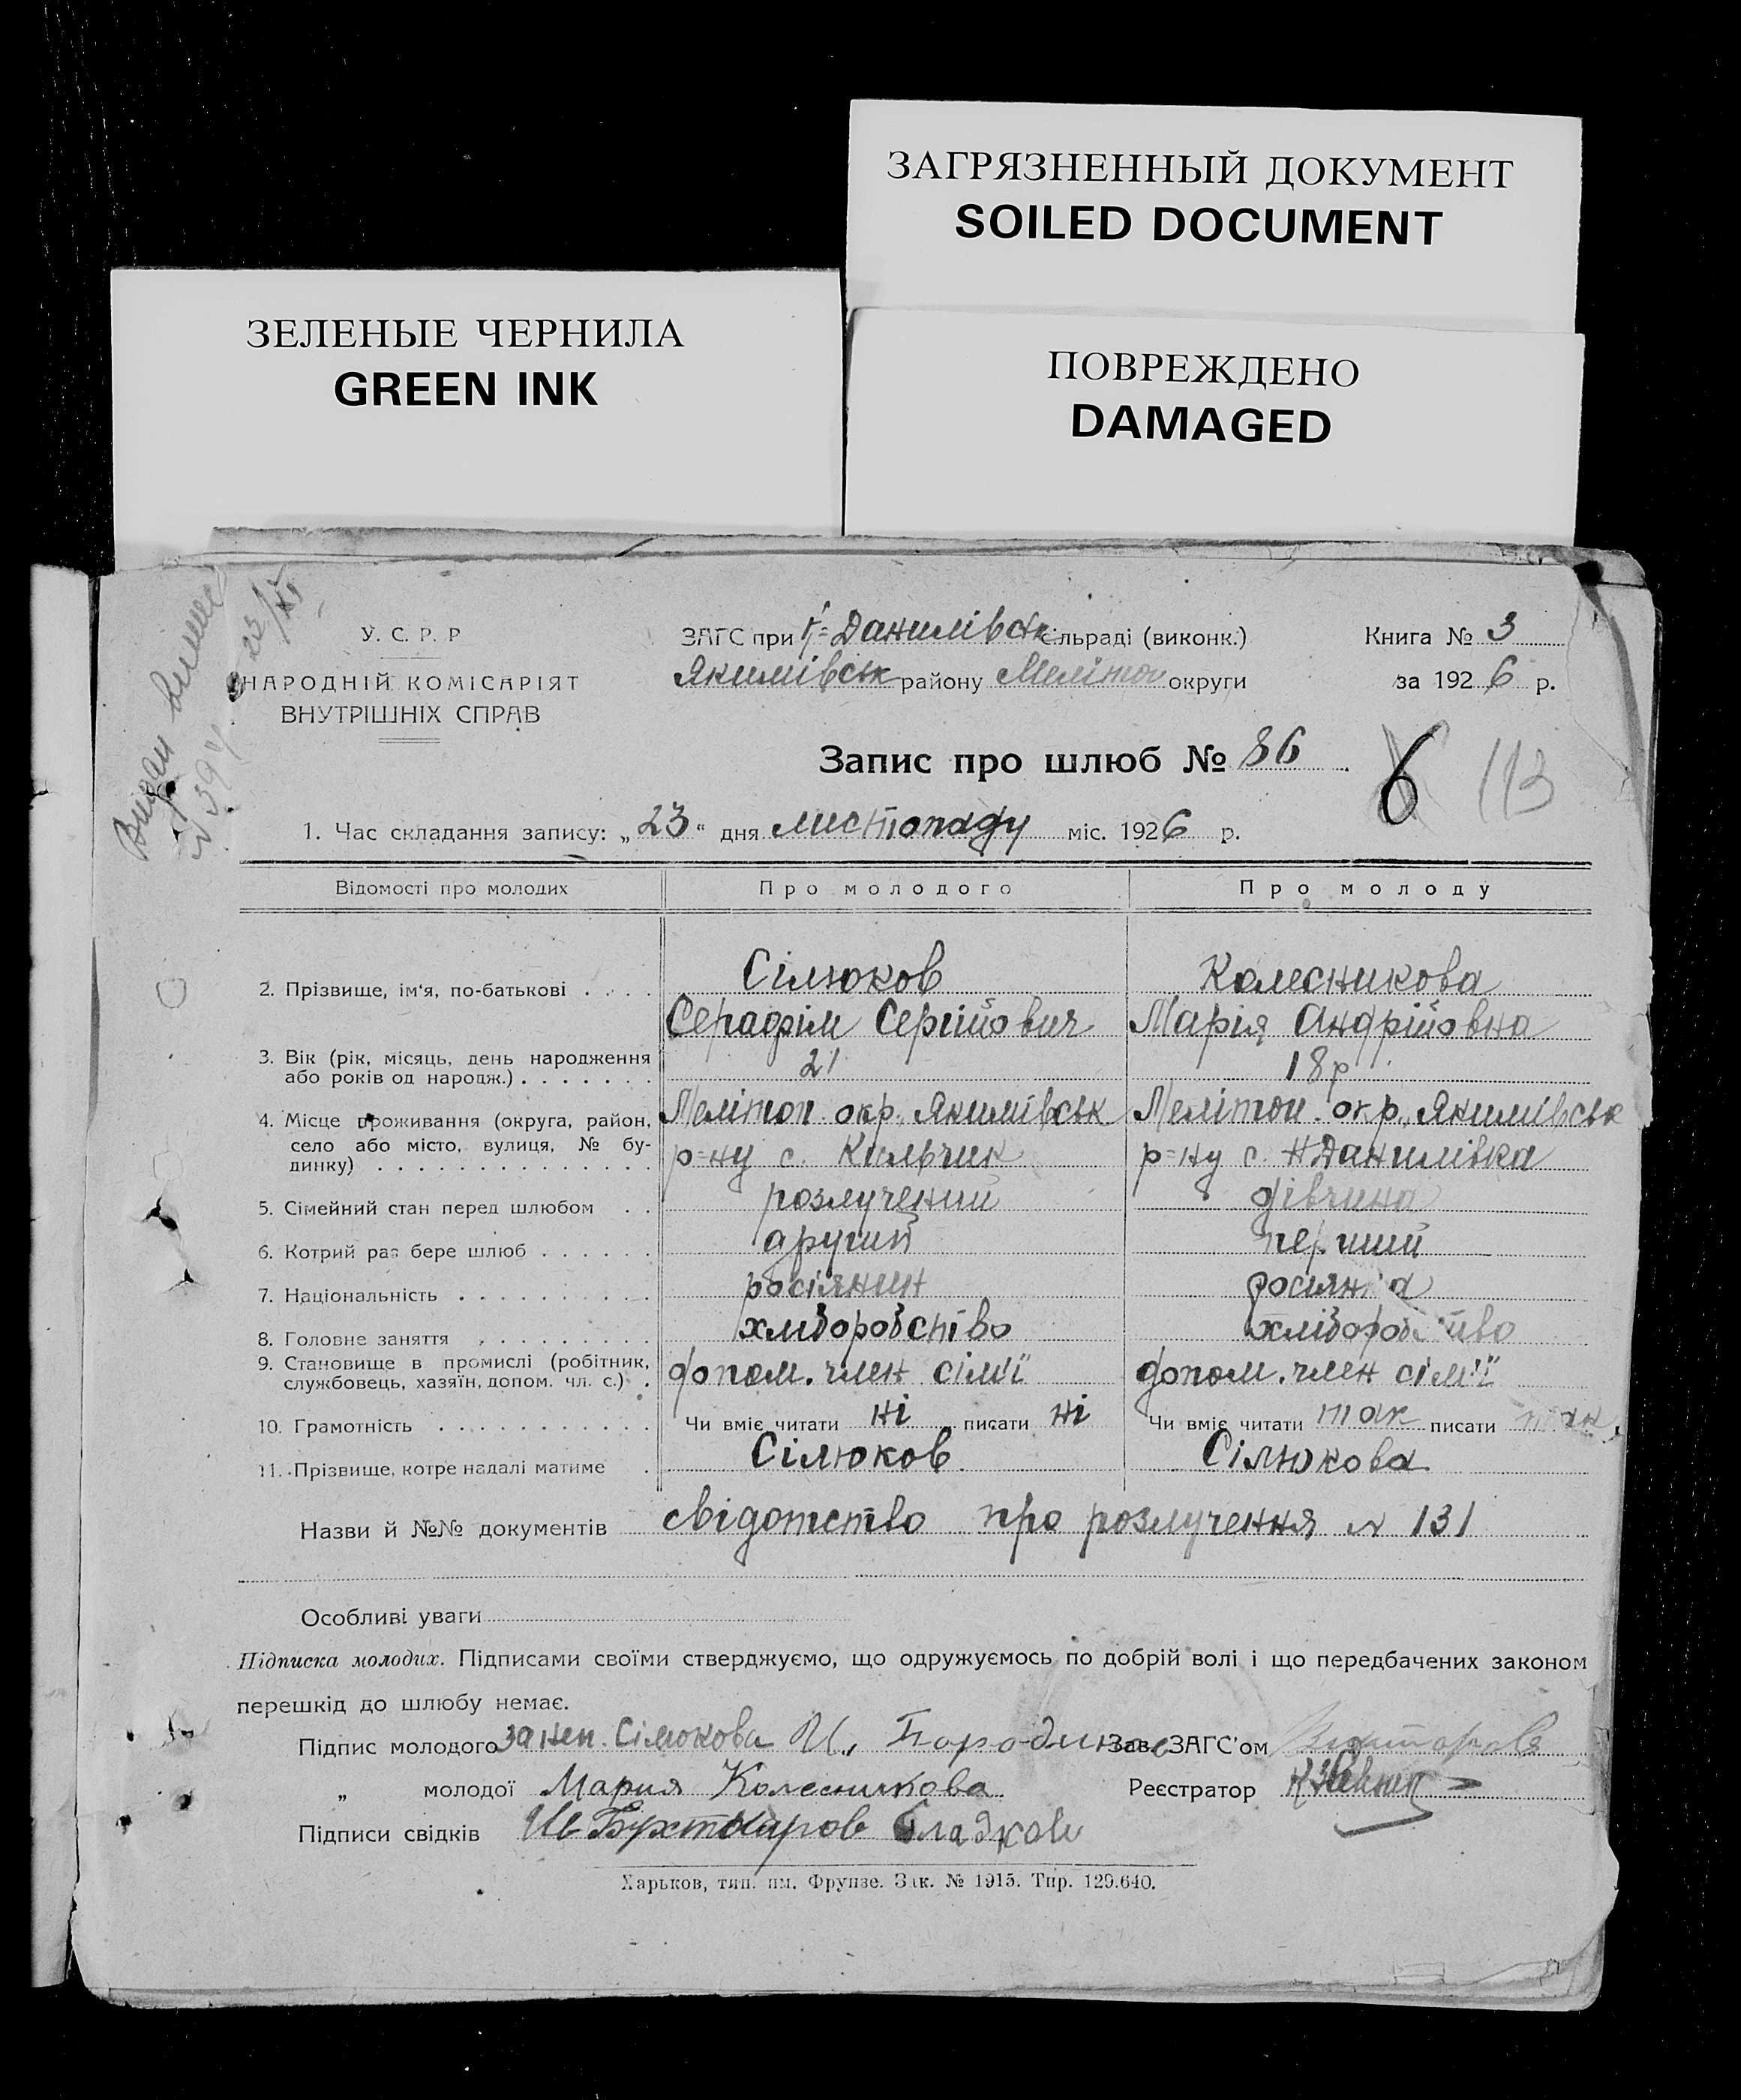 ЗАГРЯЗНЕННЫЙ ДОКУМЕНТ
SOILED DOCUMENT
ЗЕЛЕНЫЕ ЧЕРНИЛА
GREEN INK
ПОВРЕЖДЕНО
DAMAGED
У. С. Р. Р
НАРОДНІЙ КОМІСАРІЯТ
ВНУТРІШНІХ СПРАВ
ЗАГС при Данилівськ сільраді (виконк.)
Якимівськ району Мелітоп округи
Книга № 3
за 1926 р.
Запис про шлюб № 86
6 113
1. Час складання запису: „23" дня листопаду міс. 1926 р.
Відомості про молодих Про молодого Про молоду
2. Прізвище, ім'я, по-батькові . . . . Сілюков Колесникова
Серафім Сергійович Марія Андрійовна
3. Вік (рік, місяць, день народження або років од народж.) . . . . . . . 21 18 р
4. Місце проживання (округа, район, село або місто, вулиця, № будинку) . . . . . . . . . . . . . . Мелітоп окр., Якимівськ Мелітоп. окр., Якимівськ
р=ну с. р=ну с. Н Данилівка
5. Сімейний стан перед шлюбом . . розлучений дівчина
6. Котрий раз бере шлюб . . . . . . другий перший
7. Національність . . . . . . . . . . росіянин росіянка
8. Головне заняття . . . . . . . . . хліборобство хліборобство
9. Становище в промислі (робітник, службовець, хазяїн, допом. чл. с.) . допом. член сім'ї допом. член сім'ї
10. Грамотність . . . . . . . . . . . Чи вміє читати ні писати ні Чи вміє читати так писати так
11. Прізвище, котре надалі матиме . Сілюков Сілюкова
Назви й №№ документів свідотство про розлучення № 131
Особливі уваги
Підписка молодих. Підписами своїми стверджуємо, що одружуємось по добрій волі і що передбачених законом
перешкід до шлюбу немає.
Підпис молодого за неп. Сілюкова И. Зав. ЗАГС'ом
„ молодої Мария Колесникова Реєстратор
Підписи свідків
Харьков, тип. им. Фрунзе. Зак. № 1915. Тир. 129.640.